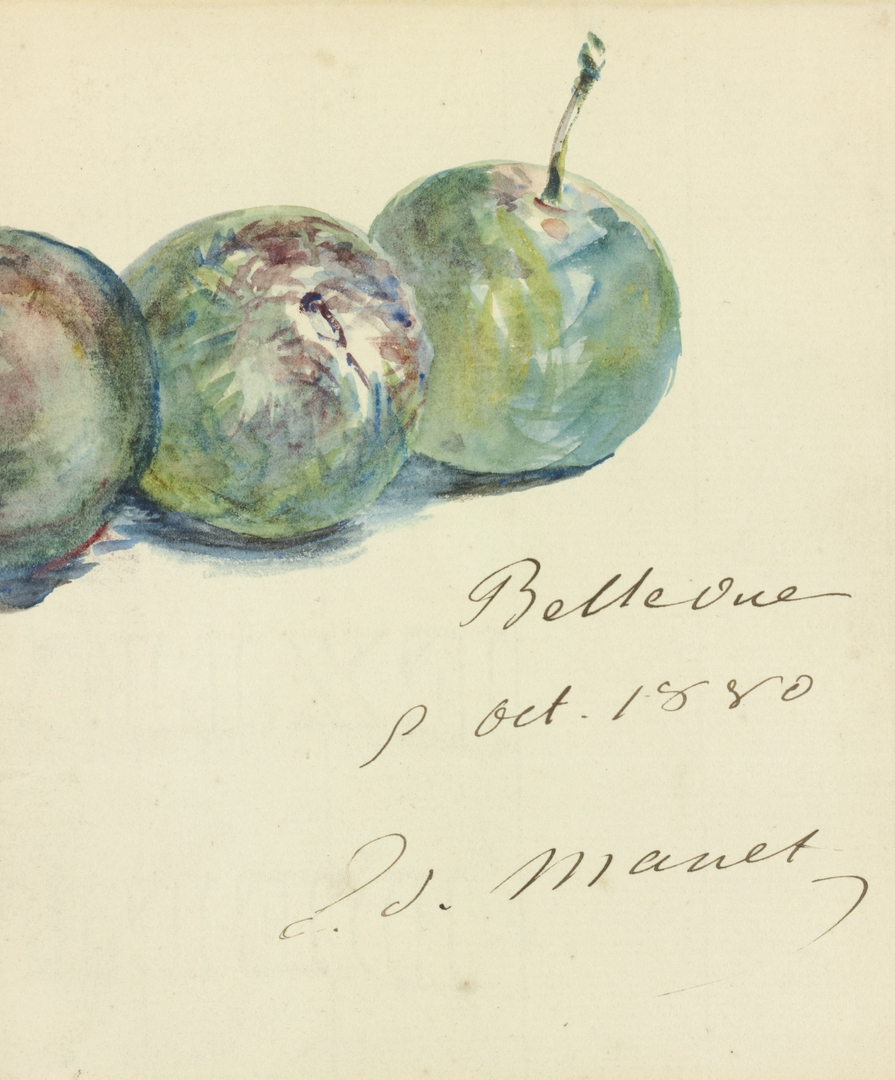 Bellevue
5 oct. 1880
Ed. Manet